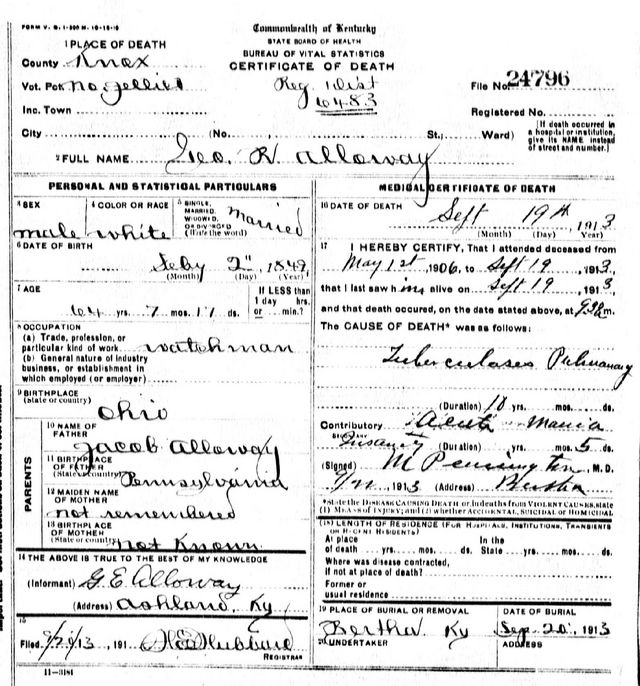 FORM V. S. 1-300 M. 10-18-10
Commonwealth of Kentucky
STATE BOARD OF HEALTH
BUREAU OF VITAL STATISTICS
CERTIFICATE OF DEATH
1 PLACE OF DEATH
County Knox
Vot. Pct. No. Jellico
Inc. Town
Reg. Dist
6483
File No. 24796
Registered No.
City (No., St.; Ward)
(If death occurred in a hospital or institution, give its NAME instead of street and number.)
2 FULL NAME Geo. W Alloway
PERSONAL AND STATISTICAL PARTICULARS
3 SEX male
4 COLOR OR RACE white
5 SINGLE, MARRIED, WIDOWED, OR DIVORCED (Write the word) Married
6 DATE OF BIRTH
Feby 2", 1849
(Month) (Day) (Year)
7 AGE
64 yrs. 7 mos. 17 ds.
If LESS than 1 day hrs. or min.?
8 OCCUPATION
(a) Trade, profession, or particular kind of work watchman
(b) General nature of industry business, or establishment in which employed (or employer)
9 BIRTHPLACE
(State or country) Ohio
PARENTS
10 NAME OF FATHER Jacob Alloway
11 BIRTHPLACE OF FATHER (State or country) Pennsylvania
12 MAIDEN NAME OF MOTHER not remembered
13 BIRTHPLACE OF MOTHER (State or country) not Known
14 THE ABOVE IS TRUE TO THE BEST OF MY KNOWLEDGE
(Informant) G E Alloway
(Address) Ashland, Ky
15
Filed 9/21/13, 191 Hubbard
REGISTRAR
11-3181
MEDICAL CERTIFICATE OF DEATH
16 DATE OF DEATH
Sept 19th, 1913
(Month) (Day) (Year)
17 I HEREBY CERTIFY, That I attended deceased from
May 1st, 1906, to Sept 19, 1913,
that I last saw him alive on Sept 19, 1913,
and that death occured, on the date stated above, at m.
The CAUSE OF DEATH* was as follows:
Tuberculoses Pulmonary
(Duration) 10 yrs. mos. ds.
Contributory Acute Mania
Insanity (Duration) yrs. mos. 5 ds.
(Signed) M Pennington, M. D.
1913 (Address) Bertha
*State the DISEASE CAUSING DEATH or, in deaths from VIOLENT CAUSES, state (1) MEANS OF INJURY; and (2) whether ACCIDENTAL, SUICIDAL or HOMICIDAL
(18) LENGTH OF RESIDENCE (FOR HOSPITALS, INSTITUTIONS, TRANSIENTS OR RECENT RESIDENTS)
At place of death yrs. mos. ds.
In the State yrs. mos. ds.
Where was disease contracted, if not at place of death?
Former or usual residence
19 PLACE OF BURIAL OR REMOVAL
Bertha Ky
DATE OF BURIAL
Sep. 20, 1913
20 UNDERTAKER
ADDRESS